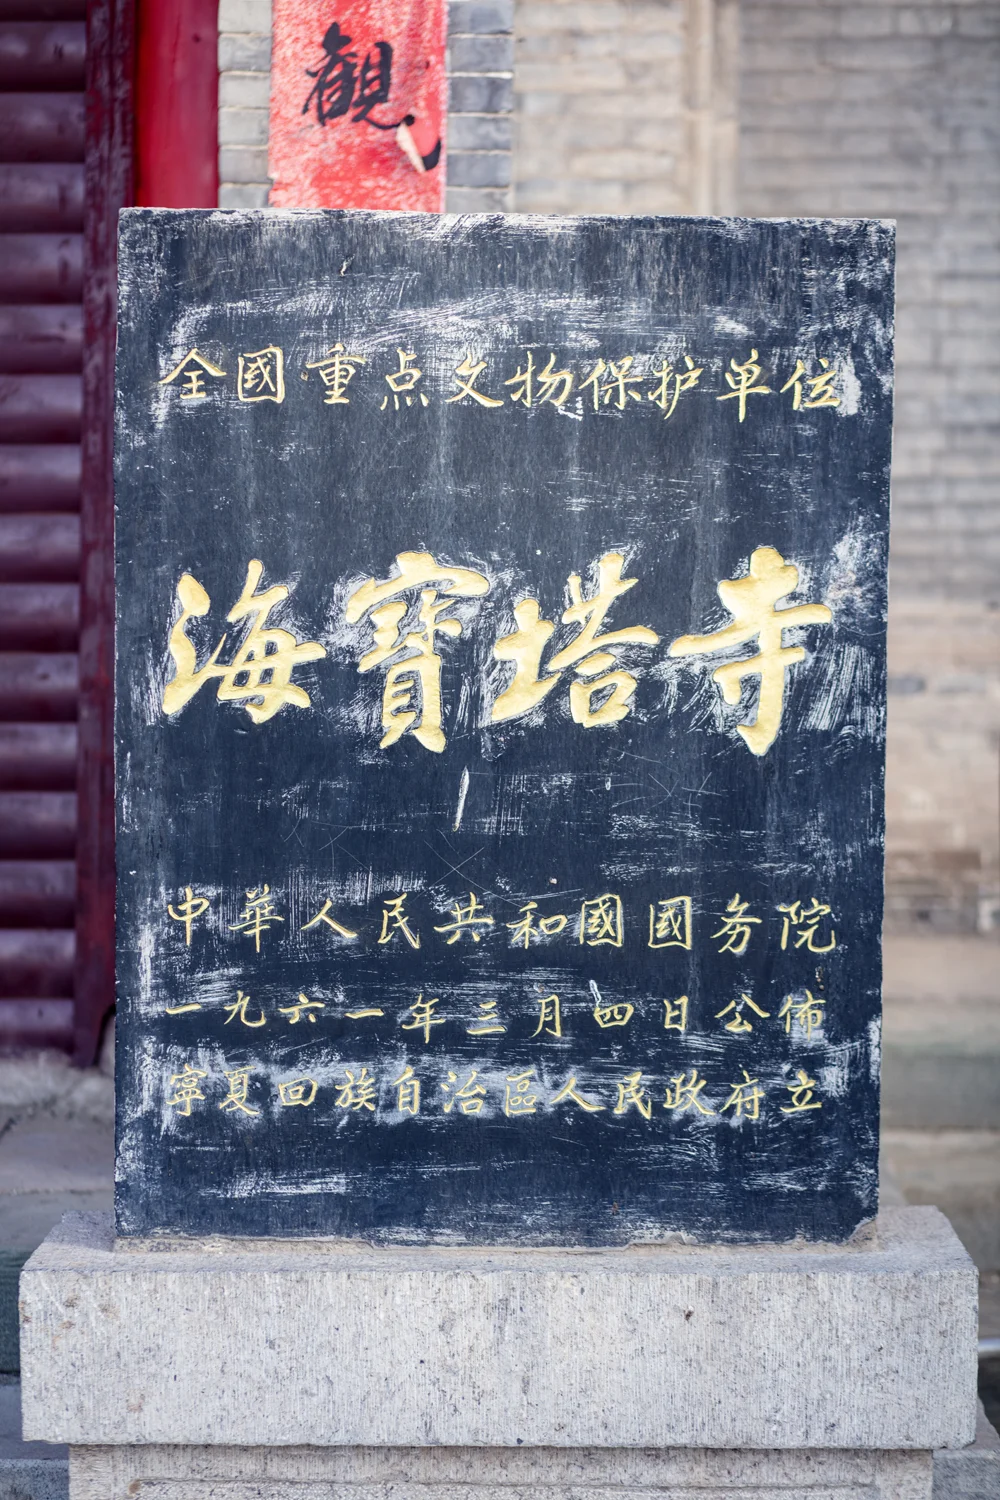 觀
全國重点文物保护单位
海寶塔寺
中華人民共和國國务院
一九六一年三月四日公佈
寧夏回族自治區人民政府立